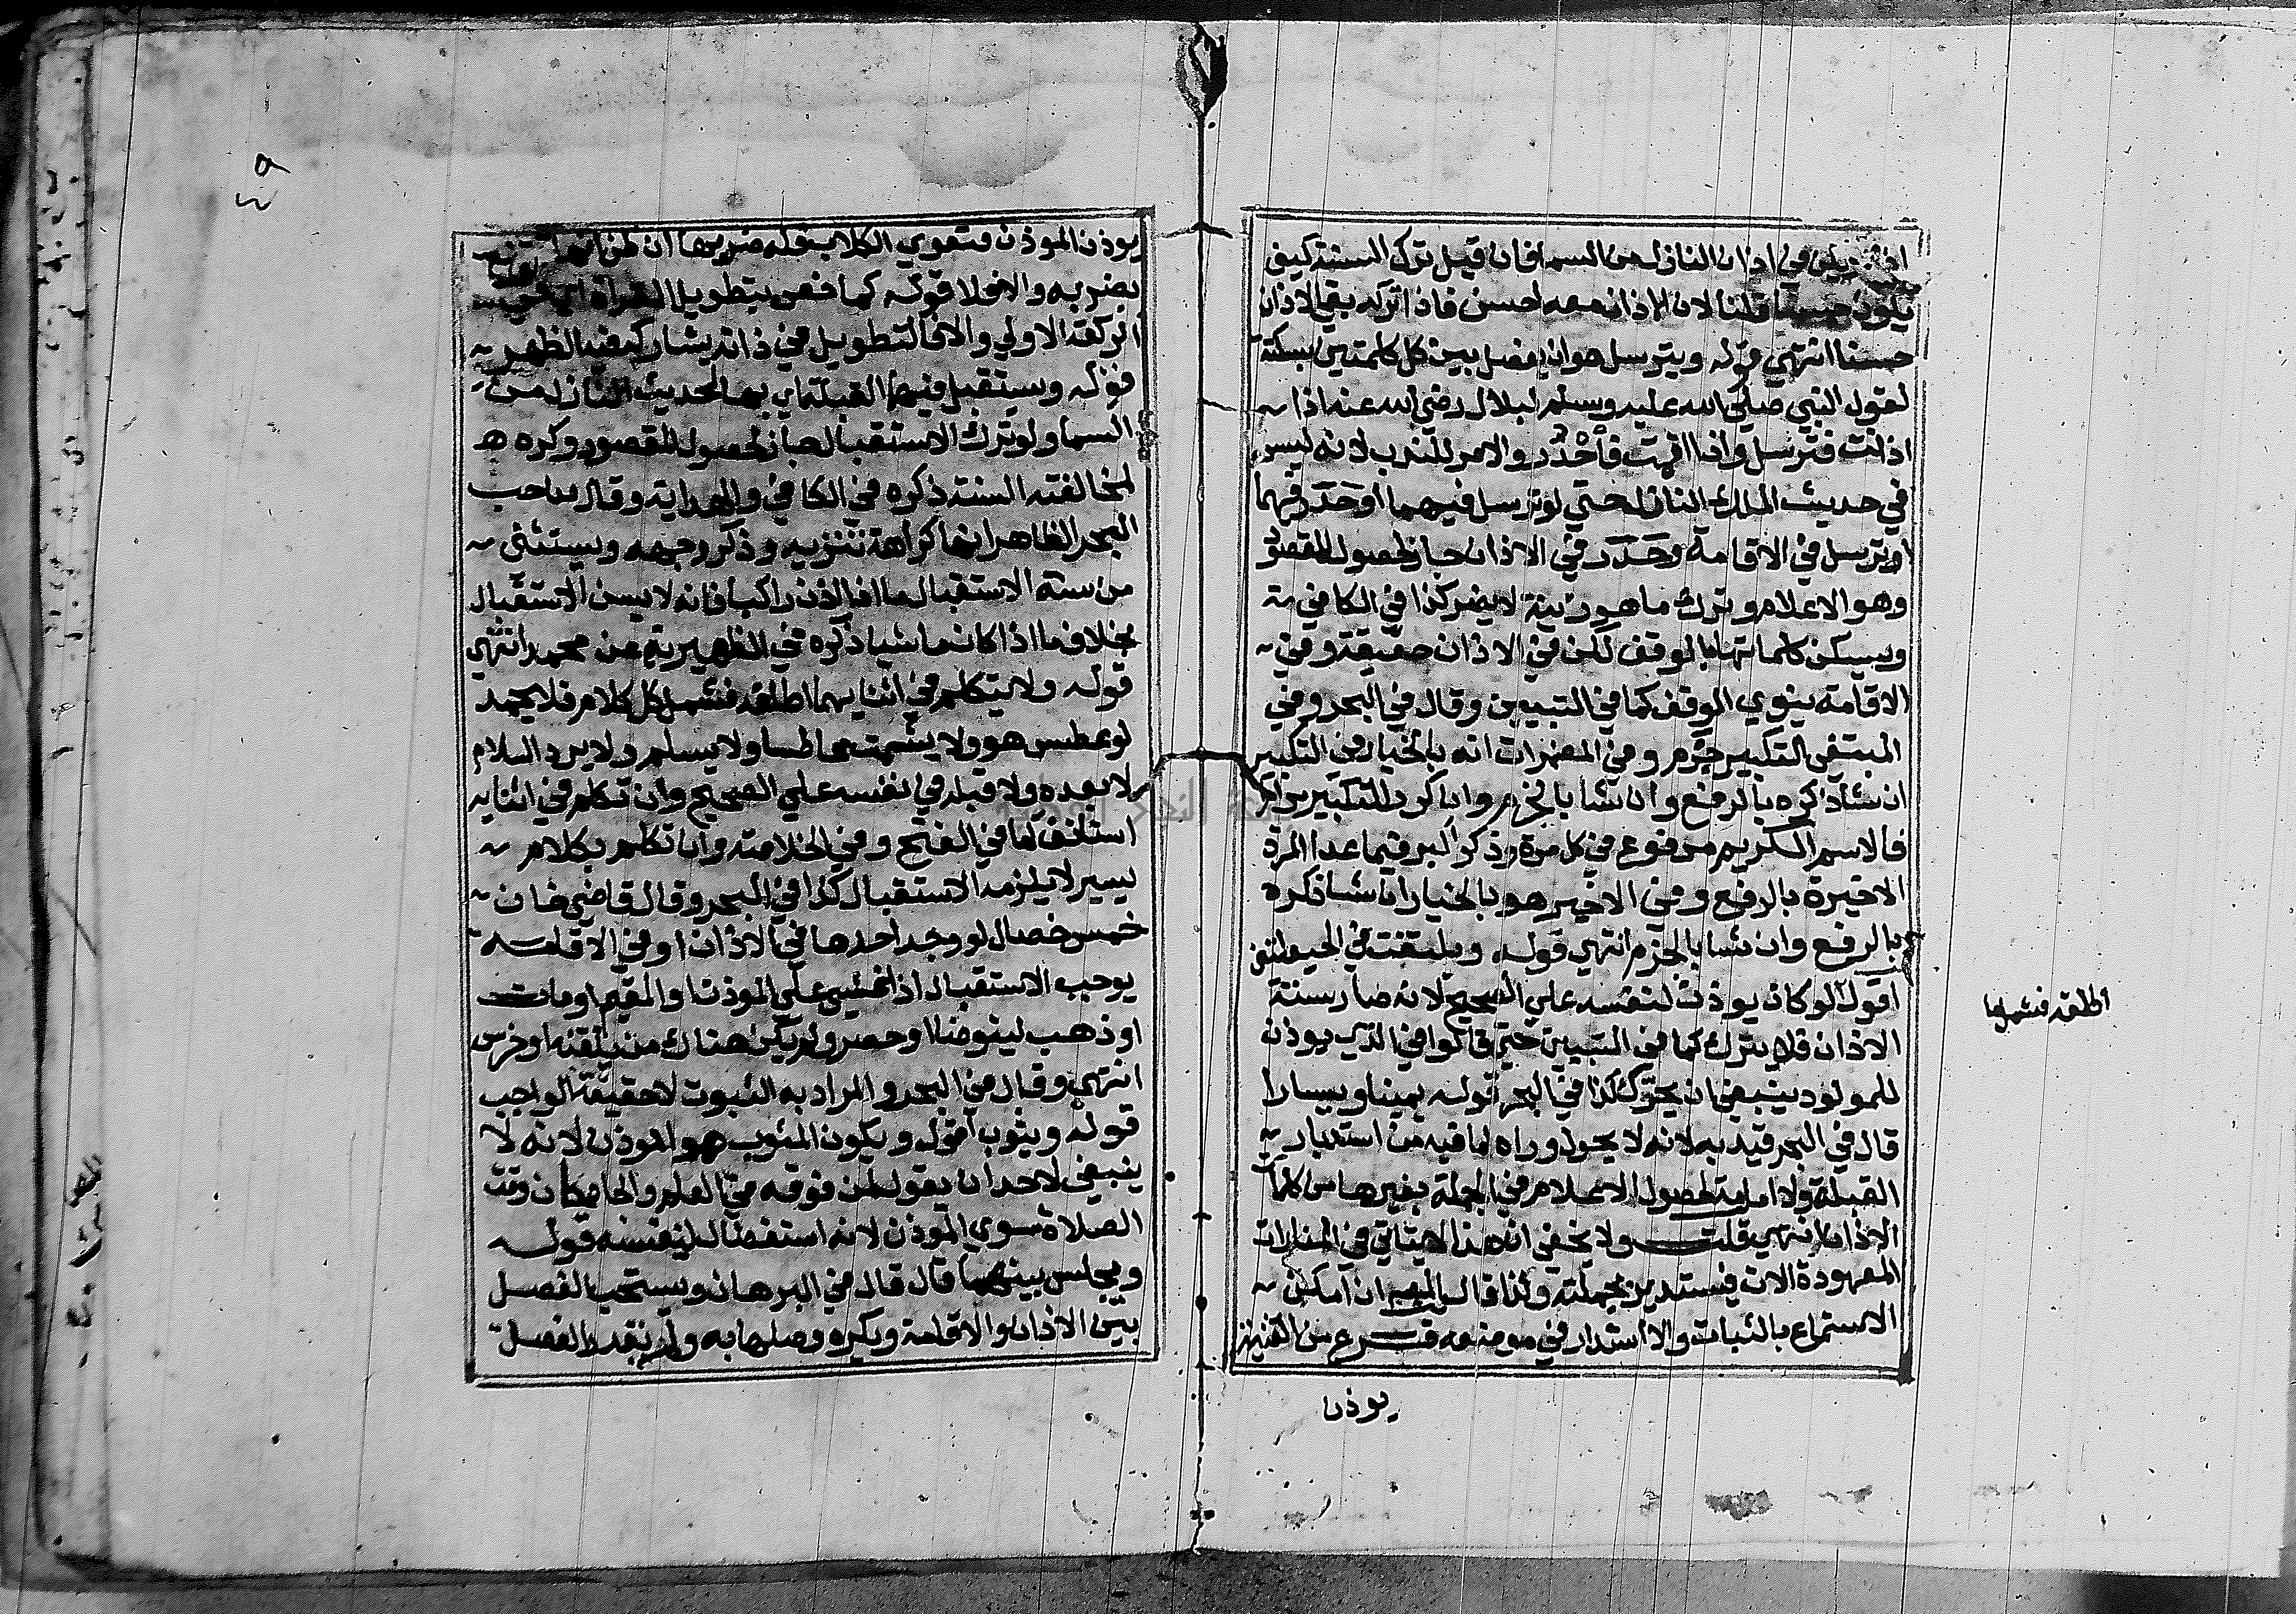 في اذان النازل من السما فان قيل ترك السنة كيف
يكون قلنا لان الاذان معه احسن فاذا تركه بقي الاذان
حسنا انتهي قوله ويترسل هوان يفصل بين كل كلمتين بسكتة
لقول النبي صلي الله عليه وسلم لبلال رضي الله عنه اذا
اذنت فترسل واذا اقمت فأحْدُر والامر للندب لانه ليس
في حديث الملك النازل حتي لو ترسل فيهما او حَدَر فيهما
او ترسل في الاقامة وحَدَر في الاذان جاز لحصول المقصود
وهو الاعلام وترك ما هو زينة لا يضر كذا في الكافي
ويسكن كلماتها بالوقف لكن في الاذان حقيقة وفي
الاقامة ينوي الوقف كما في التبيين وقال في البحر وفي
المبتغي التكبير جزم وفي المضمرات انه بالخيار في التكبير
ان شا ذكره بالرفع وان شا بالجزم وان كرر التكبير مرارا
فالاسم الكريم مرفوع في كل مرة وذكر اكبر فيما عدا المرة
الاخيرة بالرفع وفي الاخير هو بالخيار ان شا ذكره
بالرفع وان شا بالجزم انتهي قوله ويلتفت في الحيعلتين
اقول لو كان يوذن لنفسه علي الصحيح لانه صار سنة
الاذان فلا يترك كما في التبيين حتي قالوا في الذي يوذن
للمولود ينبغي ان يحوّل كذا في البحر قوله يمينا ويسارا
قال في البحر قيد به لانه لا يحول وراه لما فيه من استدبار
القبلة ولا امامه لحصول الاعلام في الجملة بغيرها من كلمات
الاذان انتهي قلت ولا يخفي ان هذا لا يتاتي في المنارات
المعهودة الان فيستدير بجملته ان امكن
الاستماع بالثبات والا استدار في موضعه فرع من القنية
يوذن
اطلقه فشملها
٤٩
يوذن الموذن فتعوي الكلاب فله ضربها ان ظن انها تمتنع
بضربه والا فلا قوله كما في تطويل القراة
الركعة الاولي والا فالتطويل في ذاته يشاركه فيه الظهر
قوله ويستقبل فيهما القبلة اي بهما لحديث النازل من
السما ولو ترك الاستقبال جاز لحصول المقصود وكره
لمخالفته السنة ذكره في الكافي والهداية وقال صاحب
البحر الظاهر انها كراهة تنزيه وذكر وجهه ويستثني
من سنة الاستقبال ما اذا اذن راكبا فانه لا يسن الاستقبال
بخلاف ما اذا كان ماشيا ذكره في الظهيرية عن محمد انتهي
قوله ولا يتكلم في اثنايهما اطلقه فشمل كل كلام فلا يحمد
لو عطس هو ولا يشمت عاطسا ولا يسلم ولا يرد السلام
لا بعده ولا قبله في نفسه علي الصحيح وان تكلم في اثنايه
استانف كما في الفتح وفي الخلاصة وان تكلم بكلام
يسير لا يلزمه الاستقبال كذا في البحر وقال قاضي خان
خمس خصال لو وجد احدها في الاذان او في الاقامة
يوجب الاستقبال اذا غشي علي الموذن او المقيم او مات
او ذهب ليتوضا او حصر ولم يكن هناك من يلقنه او خرس
انتهي وقال في البحر والمراد به الثبوت لا حقيقة الواجب
قوله ويثوب اقول ويكون المثوب هو الموذن لانه لا
ينبغي لاحد ان يقول لمن فوقه في العلم والجاه حان وقت
الصلاة سوي الموذن لانه استفضال لنفسه قوله
ويجلس بينهما قال قال في البرهان ويستحب الفصل
بين الاذان والاقامة ويكره وصلها به ولم يقدر الفصل